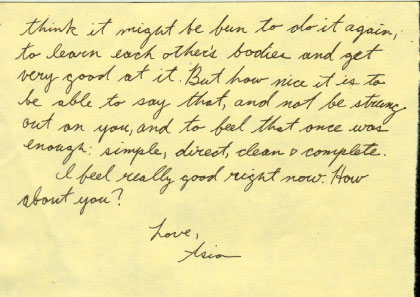 think it might be fun to do it again,
to learn each other's bodies and get
very good at it. But how nice it is to
be able to say that, and not be strung
out on you, and to feel that once was
enough: simple, direct, clean & complete.
I feel really good right now. How
about you?
Love,
Asia